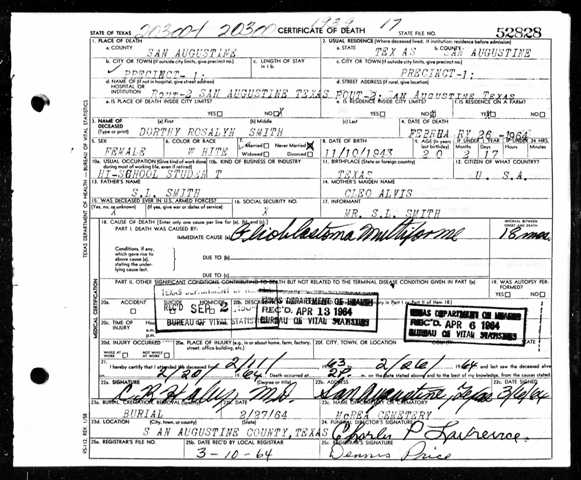 203001 20300 1939 17
STATE OF TEXAS CERTIFICATE OF DEATH STATE FILE NO. 52828
1. PLACE OF DEATH 2. USUAL RESIDENCE (Where deceased lived. If institution: residence before admission)
a. COUNTY SAN AUGUSTINE a. STATE TEXAS b. COUNTY SAN AUGUSTINE
b. CITY OR TOWN (If outside city limits, give precinct no.) c. LENGTH OF STAY in 1 b. c. CITY OR TOWN (If outside city limits, give precinct no.)
PRECINCT-1: PRECINCT-1:
d. NAME OF (If not in hospital, give street address) HOSPITAL OR INSTITUTION d. STREET ADDRESS (If rural, give location)
ROUT-2 SAN AUGUSTINE TEXAS ROUT-2: SAN AUGUSTINE TEXAS
e. IS PLACE OF DEATH INSIDE CITY LIMITS? YES NO X e. IS RESIDENCE INSIDE CITY LIMITS? YES NO f. IS RESIDENCE ON A FARM? YES NO
3. NAME OF DECEASED (Type or print) (a) First (b) Middle (c) Last 4. DATE OF DEATH
DORTHY ROSALYN SMITH FEBRUARY 26-1964
5. SEX 6. COLOR OR RACE 7. Married Never Married X Widowed Divorced 8. DATE OF BIRTH 9. AGE (In years last birthday) IF UNDER 1 YEAR Months Days IF UNDER 24 HRS. Hours Min.
FEMALE WHITE 11/10/1943 20 3 17
10a. USUAL OCCUPATION (Give kind of work done during most of working life, even if retired) 10b. KIND OF BUSINESS OR INDUSTRY 11. BIRTHPLACE (State or foreign country) 12. CITIZEN OF WHAT COUNTRY?
HI-SCHOOL STUDENT TEXAS U. S.A.
13. FATHER'S NAME 14. MOTHER'S MAIDEN NAME
S.L. SMITH CLEO ALVIS
15. WAS DECEASED EVER IN U.S. ARMED FORCES? (Yes, no, or unknown) (If yes, give war or dates of service) 16. SOCIAL SECURITY NO. 17. INFORMANT
X MR. S.L. SMITH
18. CAUSE OF DEATH (Enter only one cause per line for (a), (b), and (c).) INTERVAL BETWEEN ONSET AND DEATH
PART I. DEATH WAS CAUSED BY:
IMMEDIATE CAUSE (a) Glioblastoma Multiforme 18 mos.
Conditions, if any, which gave rise to above cause (a), stating the underlying cause last. DUE TO (b)
DUE TO (c)
PART II. OTHER SIGNIFICANT CONDITIONS CONTRIBUTING TO DEATH BUT NOT RELATED TO THE TERMINAL DISEASE CONDITION GIVEN IN PART I(a) 19. WAS AUTOPSY PERFORMED? YES NO
20a. ACCIDENT SUICIDE HOMICIDE
TEXAS DEPARTMENT OF HEALTH
REC'D SEP 2
BUREAU OF VITAL STATISTICS
TEXAS DEPARTMENT OF HEALTH
REC'D. APR 13 1964
BUREAU OF VITAL STATISTICS
TEXAS DEPARTMENT OF HEALTH
REC'D. APR 6 1964
BUREAU OF VITAL STATISTICS
20c. TIME OF INJURY
20d. INJURY OCCURRED WHILE AT WORK NOT WHILE AT WORK 20e. PLACE OF INJURY (e.g., in or about home, farm, factory, street, office building, etc.) 20f. CITY, TOWN, OR LOCATION COUNTY STATE
21. I hereby certify that I attended the deceased from 2/1/ 63 to 2/26/ 1964
Death occurred at 2P m. on the date stated above and to the best of my knowledge, from the causes stated.
22a. SIGNATURE (Degree or title) 22b. ADDRESS 22c. DATE SIGNED
M.D. San Augustine, Texas
23a. BURIAL, CREMATION, REMOVAL (Specify) 23b. DATE 23c. NAME OF CEMETERY OR CREMATORY
BURIAL 2/27/64 McREA CEMETERY
23d. LOCATION (City, town, or county) (State) 24. FUNERAL DIRECTOR'S SIGNATURE
SAN AUGUSTINE COUNTY, TEXAS Charles P Lawrence
25a. REGISTRAR'S FILE NO. 25b. DATE REC'D BY LOCAL REGISTRAR 25c. REGISTRAR'S SIGNATURE
3-10-64 Dennis Price
TEXAS DEPARTMENT OF HEALTH—BUREAU OF VITAL STATISTICS
MEDICAL CERTIFICATION